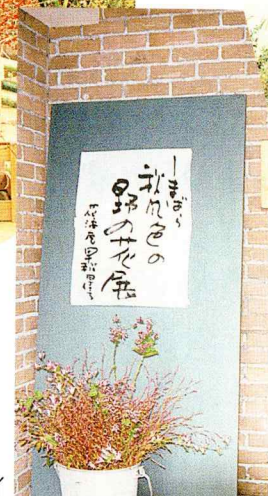 しまばら
秋風色の
野の花展